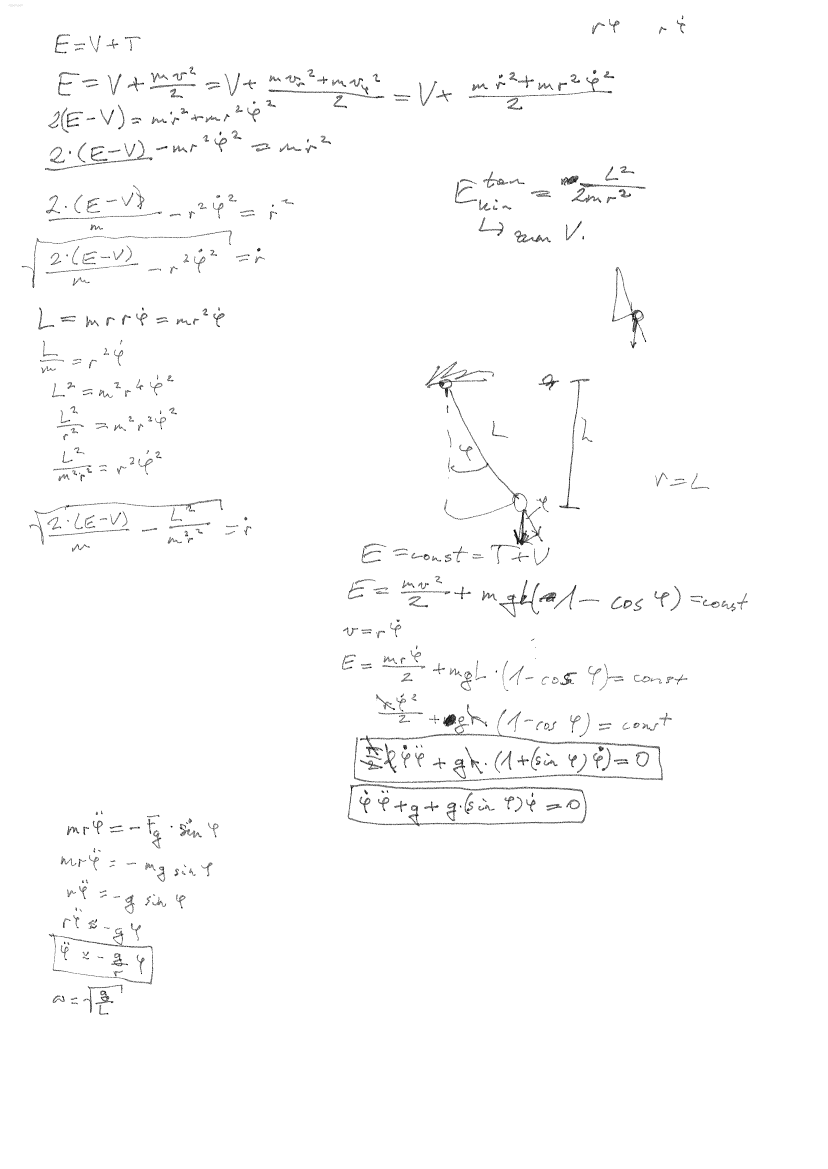 rφ   rφ̇
E = V + T
E = V + mv²/2 = V + (mv_r² + mv_φ²)/2 = V + (mṙ² + mr²φ̇²)/2
2(E-V) = mṙ² + mr²φ̇²
2·(E-V) - mr²φ̇² = mṙ²
2·(E-V)/m - r²φ̇² = ṙ²
√(2·(E-V)/m - r²φ̇²) = ṙ
L = mrrφ̇ = mr²φ̇
L/m = r²φ̇
L² = m²r⁴φ̇²
L²/r² = m²r²φ̇²
L²/(m²r²) = r²φ̇²
√(2·(E-V)/m - L²/(m²r²)) = ṙ
E_kin^tan = L²/(2mr²)
↳ zum V.
L
φ
h
φ
r = L
E = const = T + V
E = mv²/2 + mgL(1 - cos φ) = const
v = rφ̇
E = mrφ̇/2 + mgL·(1 - cos φ) = const
φ̇²/2 + g (1 - cos φ) = const
φ̇φ̈ + g·(1 + (sin φ)φ̇) = 0
φ̇φ̈ + g + g·(sin φ)φ̇ = 0
mrφ̈ = -F_g · sin φ
mrφ̈ = -mg sin φ
rφ̈ = -g sin φ
rφ̈ ≈ -gφ
φ̈ ≈ -g/r φ
ω = √(g/L)